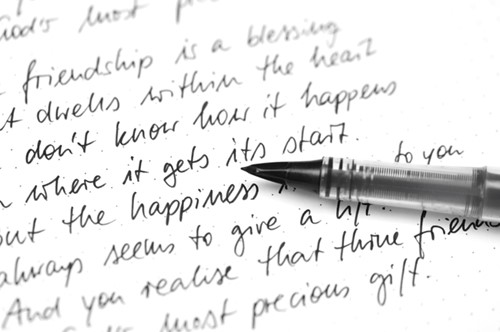 God's most
friendship is a blessing
dwells within the heart
don't know how it happens
where it gets its start.
the happiness to you
always seems to give a
And you realise that thine
most precious gift.